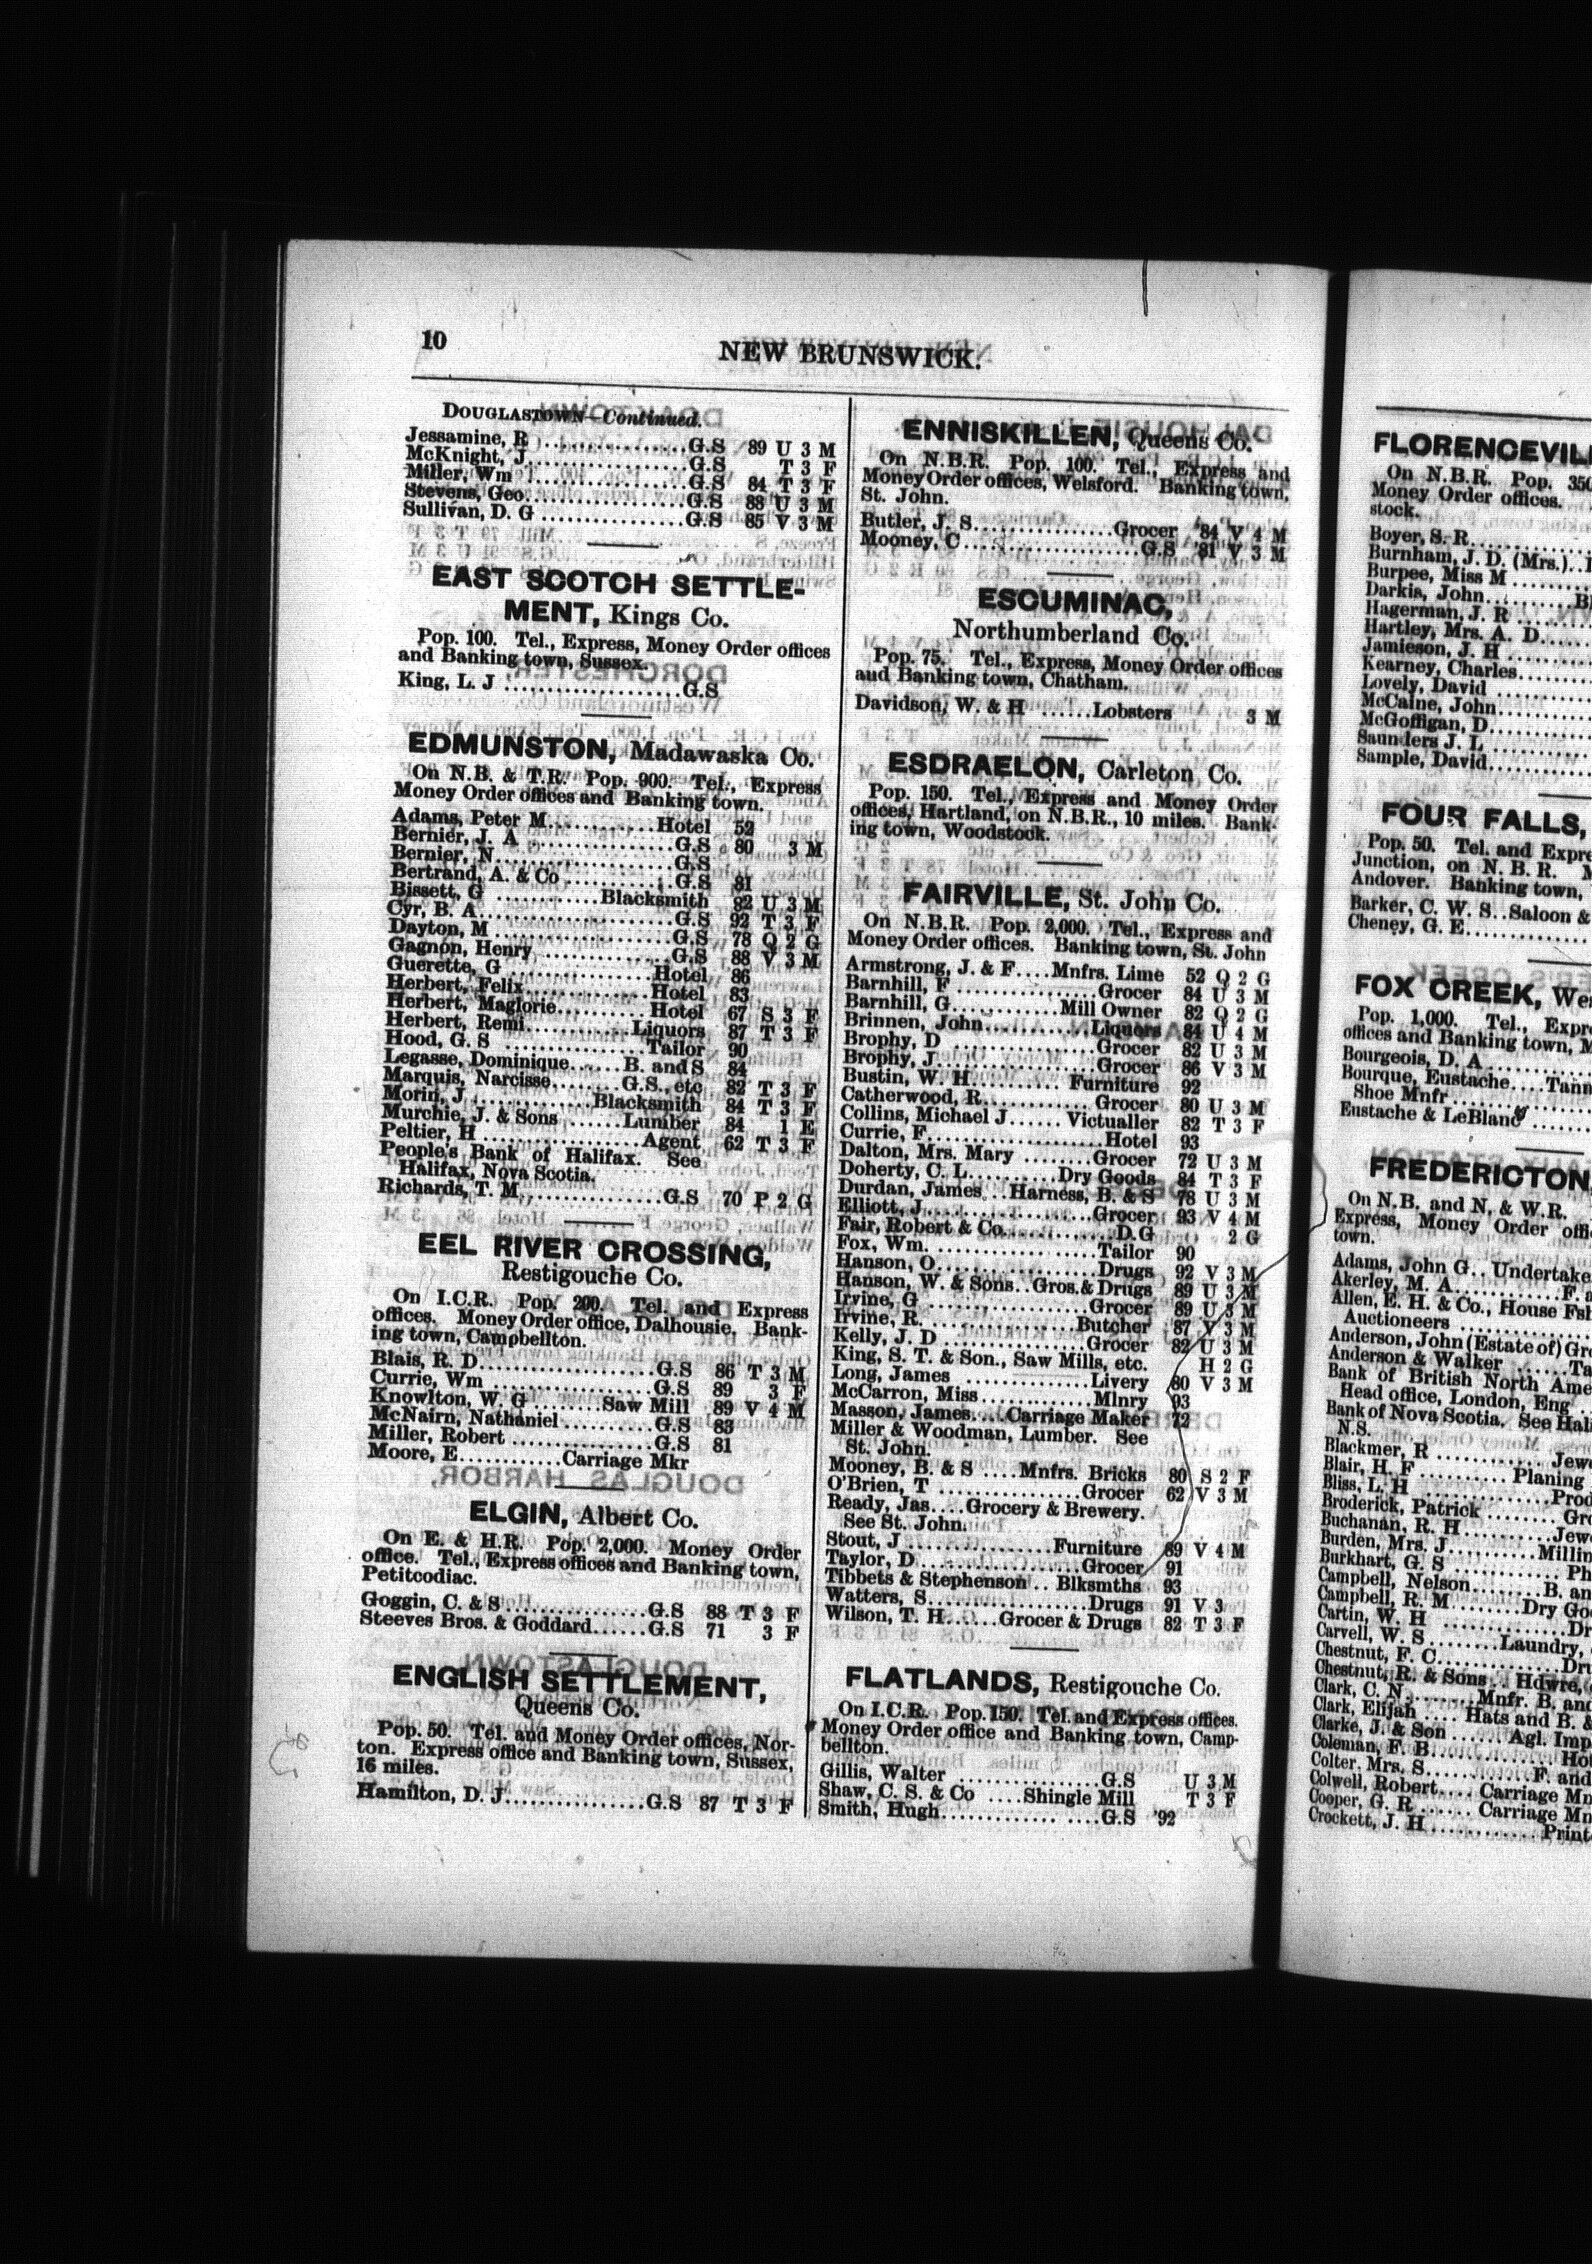 10
NEW BRUNSWICK.
DOUGLASTOWN—Continued.
Jessamine, R ................G.S 89 U 3 M
McKnight, J..................G.S T 3 F
Miller, Wm ..................G.S 84 T 3 F
Stevens, Geo.................G.S 88 U 3 M
Sullivan, D. G ..............G.S 85 V 3 M
EAST SCOTCH SETTLE-
MENT, Kings Co.
Pop. 100. Tel., Express, Money Order offices
and Banking town, Sussex.
King, L. J ..................G.S
EDMUNSTON, Madawaska Co.
On N.B. & T.R. Pop. 900. Tel., Express
Money Order offices and Banking town.
Adams, Peter M...........Hotel 52
Bernier, J. A ...............G.S 80 3 M
Bernier, N..................G.S
Bertrand, A. & Co...........G.S 81
Bissett, G ..........Blacksmith 82 U 3 M
Cyr, B. A...................G.S 92 T 3 F
Dayton, M ..................G.S 78 Q 2 G
Gagnon, Henry...............G.S 88 V 3 M
Guerette, G ..............Hotel 86
Herbert, Felix............Hotel 83
Herbert, Maglorie.........Hotel 67 S 3 F
Herbert, Remi...........Liquors 87 T 3 F
Hood, G. S ..............Tailor 90
Legasse, Dominique......B. and S 84
Marquis, Narcisse.......G.S., etc 82 T 3 F
Morin, J ............Blacksmith 84 T 3 F
Murchie, J. & Sons ......Lumber 84 1 E
Peltier, H ...............Agent 62 T 3 F
People's Bank of Halifax. See
Halifax, Nova Scotia.
Richards, T. M..............G.S 70 P 2 G
EEL RIVER CROSSING,
Restigouche Co.
On I.C.R. Pop. 200. Tel. and Express
offices. Money Order office, Dalhousie. Bank-
ing town, Campbellton.
Blais, R. D.................G.S 86 T 3 M
Currie, Wm .................G.S 89 3 F
Knowlton, W. G .......Saw Mill 89 V 4 M
McNairn, Nathaniel..........G.S 83
Miller, Robert .............G.S 81
Moore, E...........Carriage Mkr
ELGIN, Albert Co.
On E. & H.R. Pop. 2,000. Money Order
office. Tel., Express offices and Banking town,
Petitcodiac.
Goggin, C. & S .............G.S 88 T 3 F
Steeves Bros. & Goddard......G.S 71 3 F
ENGLISH SETTLEMENT,
Queens Co.
Pop. 50. Tel. and Money Order offices, Nor-
ton. Express office and Banking town, Sussex,
16 miles.
Hamilton, D. J..............G.S 87 T 3 F
ENNISKILLEN, Queens Co.
On N.B.R. Pop. 100. Tel., Express and
Money Order offices, Welsford. Banking town,
St. John.
Butler, J. S..............Grocer '84 V 4 M
Mooney, C ..................G.S '81 V 3 M
ESCUMINAC,
Northumberland Co.
Pop. 75. Tel., Express, Money Order offices
and Banking town, Chatham.
Davidson, W. & H ......Lobsters 3 M
ESDRAELON, Carleton Co.
Pop. 150. Tel., Express and Money Order
offices, Hartland, on N.B.R., 10 miles. Bank-
ing town, Woodstock.
FAIRVILLE, St. John Co.
On N.B.R. Pop. 2,000. Tel., Express and
Money Order offices. Banking town, St. John
Armstrong, J. & F....Mnfrs. Lime 52 Q 2 G
Barnhill, F ..............Grocer 84 U 3 M
Barnhill, G...........Mill Owner 82 Q 2 G
Brinnen, John............Liquors 84 U 4 M
Brophy, D ................Grocer 82 U 3 M
Brophy, J.................Grocer 86 V 3 M
Bustin, W. H...........Furniture 92
Catherwood, R.............Grocer 80 U 3 M
Collins, Michael J......Victualler 82 T 3 F
Currie, F..................Hotel 93
Dalton, Mrs. Mary ........Grocer 72 U 3 M
Doherty, C. L..........Dry Goods 84 T 3 F
Durdan, James...Harness, B. & S 78 U 3 M
Elliott, J................Grocer 93 V 4 M
Fair, Robert & Co............D.G 2 G
Fox, Wm. .................Tailor 90
Hanson, O..................Drugs 92 V 3 M
Hanson, W. & Sons..Gros. & Drugs 89 U 3 M
Irvine, G ................Grocer 89 U 3 M
Irvine, R................Butcher 87 V 3 M
Kelly, J. D ..............Grocer 82 U 3 M
King, S. T. & Son., Saw Mills, etc. H 2 G
Long, James ..............Livery 80 V 3 M
McCarron, Miss.............Mlnry 93
Masson, James....Carriage Maker 72
Miller & Woodman, Lumber. See
St. John.
Mooney, B. & S ....Mnfrs. Bricks 80 S 2 F
O'Brien, T ...............Grocer 62 V 3 M
Ready, Jas....Grocery & Brewery.
See St. John.
Stout, J ..............Furniture 89 V 4 M
Taylor, D.................Grocer 91
Tibbets & Stephenson .. Blksmths 93
Watters, S.................Drugs 91 V 3
Wilson, T. H......Grocer & Drugs 82 T 3 F
FLATLANDS, Restigouche Co.
On I.C.R. Pop. 150. Tel. and Express offices.
Money Order office and Banking town, Camp-
bellton.
Gillis, Walter ..............G.S U 3 M
Shaw, C. S. & Co ....Shingle Mill T 3 F
Smith, Hugh.................G.S '92
FLORENCEVIL
On N.B.R. Pop. 350
Money Order offices.
stock.
Boyer, S. R..............
Burnham, J. D. (Mrs.)..
Burpee, Miss M .........
Darkis, John..........Bl
Hagerman, J. R .........
Hartley, Mrs. A. D......
Jamieson, J. H .........
Kearney, Charles........
Lovely, David ..........
McCaine, John...........
McGoffigan, D...........
Saunders J. L ..........
Sample, David...........
FOUR FALLS,
Pop. 50. Tel. and Expre
Junction, on N. B. R. M
Andover. Banking town,
Barker, C. W. S..Saloon &
Cheney, G. E............
FOX CREEK, Wes
Pop. 1,000. Tel., Expr
offices and Banking town, M
Bourgeois, D. A .........
Bourque, Eustache....Tann
Shoe Mnfr ..............
Eustache & LeBlanc ......
FREDERICTON,
On N.B. and N. & W.R.
Express, Money Order offi
town.
Adams, John G..Undertake
Akerley, M. A...........F. a
Allen, E. H. & Co., House Fsh
Auctioneers .............
Anderson, John (Estate of) Gro
Anderson & Walker ......Ta
Bank of British North Ame
Head office, London, Eng ..
Bank of Nova Scotia. See Hali
N.S.
Blackmer, R ............Jewe
Blair, H. F .........Planing
Bliss, L. H .............Prod
Broderick, Patrick .......Gro
Buchanan, R. H .........Jewe
Burden, Mrs. J.........Millin
Burkhart, G. S ..........Ph
Campbell, Nelson.......B. an
Campbell, R. M.......Dry Goo
Cartin, W. H ............Dr
Carvell, W. S........Laundry,
Chestnut, F. C...........Dru
Chestnut, R. & Sons..Hdwre,
Clark, C. N........Mnfr. B. and
Clark, Elijah ....Hats and B. &
Clarke, J. & Son ......Agl. Imp
Coleman, F. B............Hot
Colter, Mrs. S.........F. and
Colwell, Robert....Carriage Mn
Cooper, G. R ......Carriage Mn
Crockett, J. H ...........Print